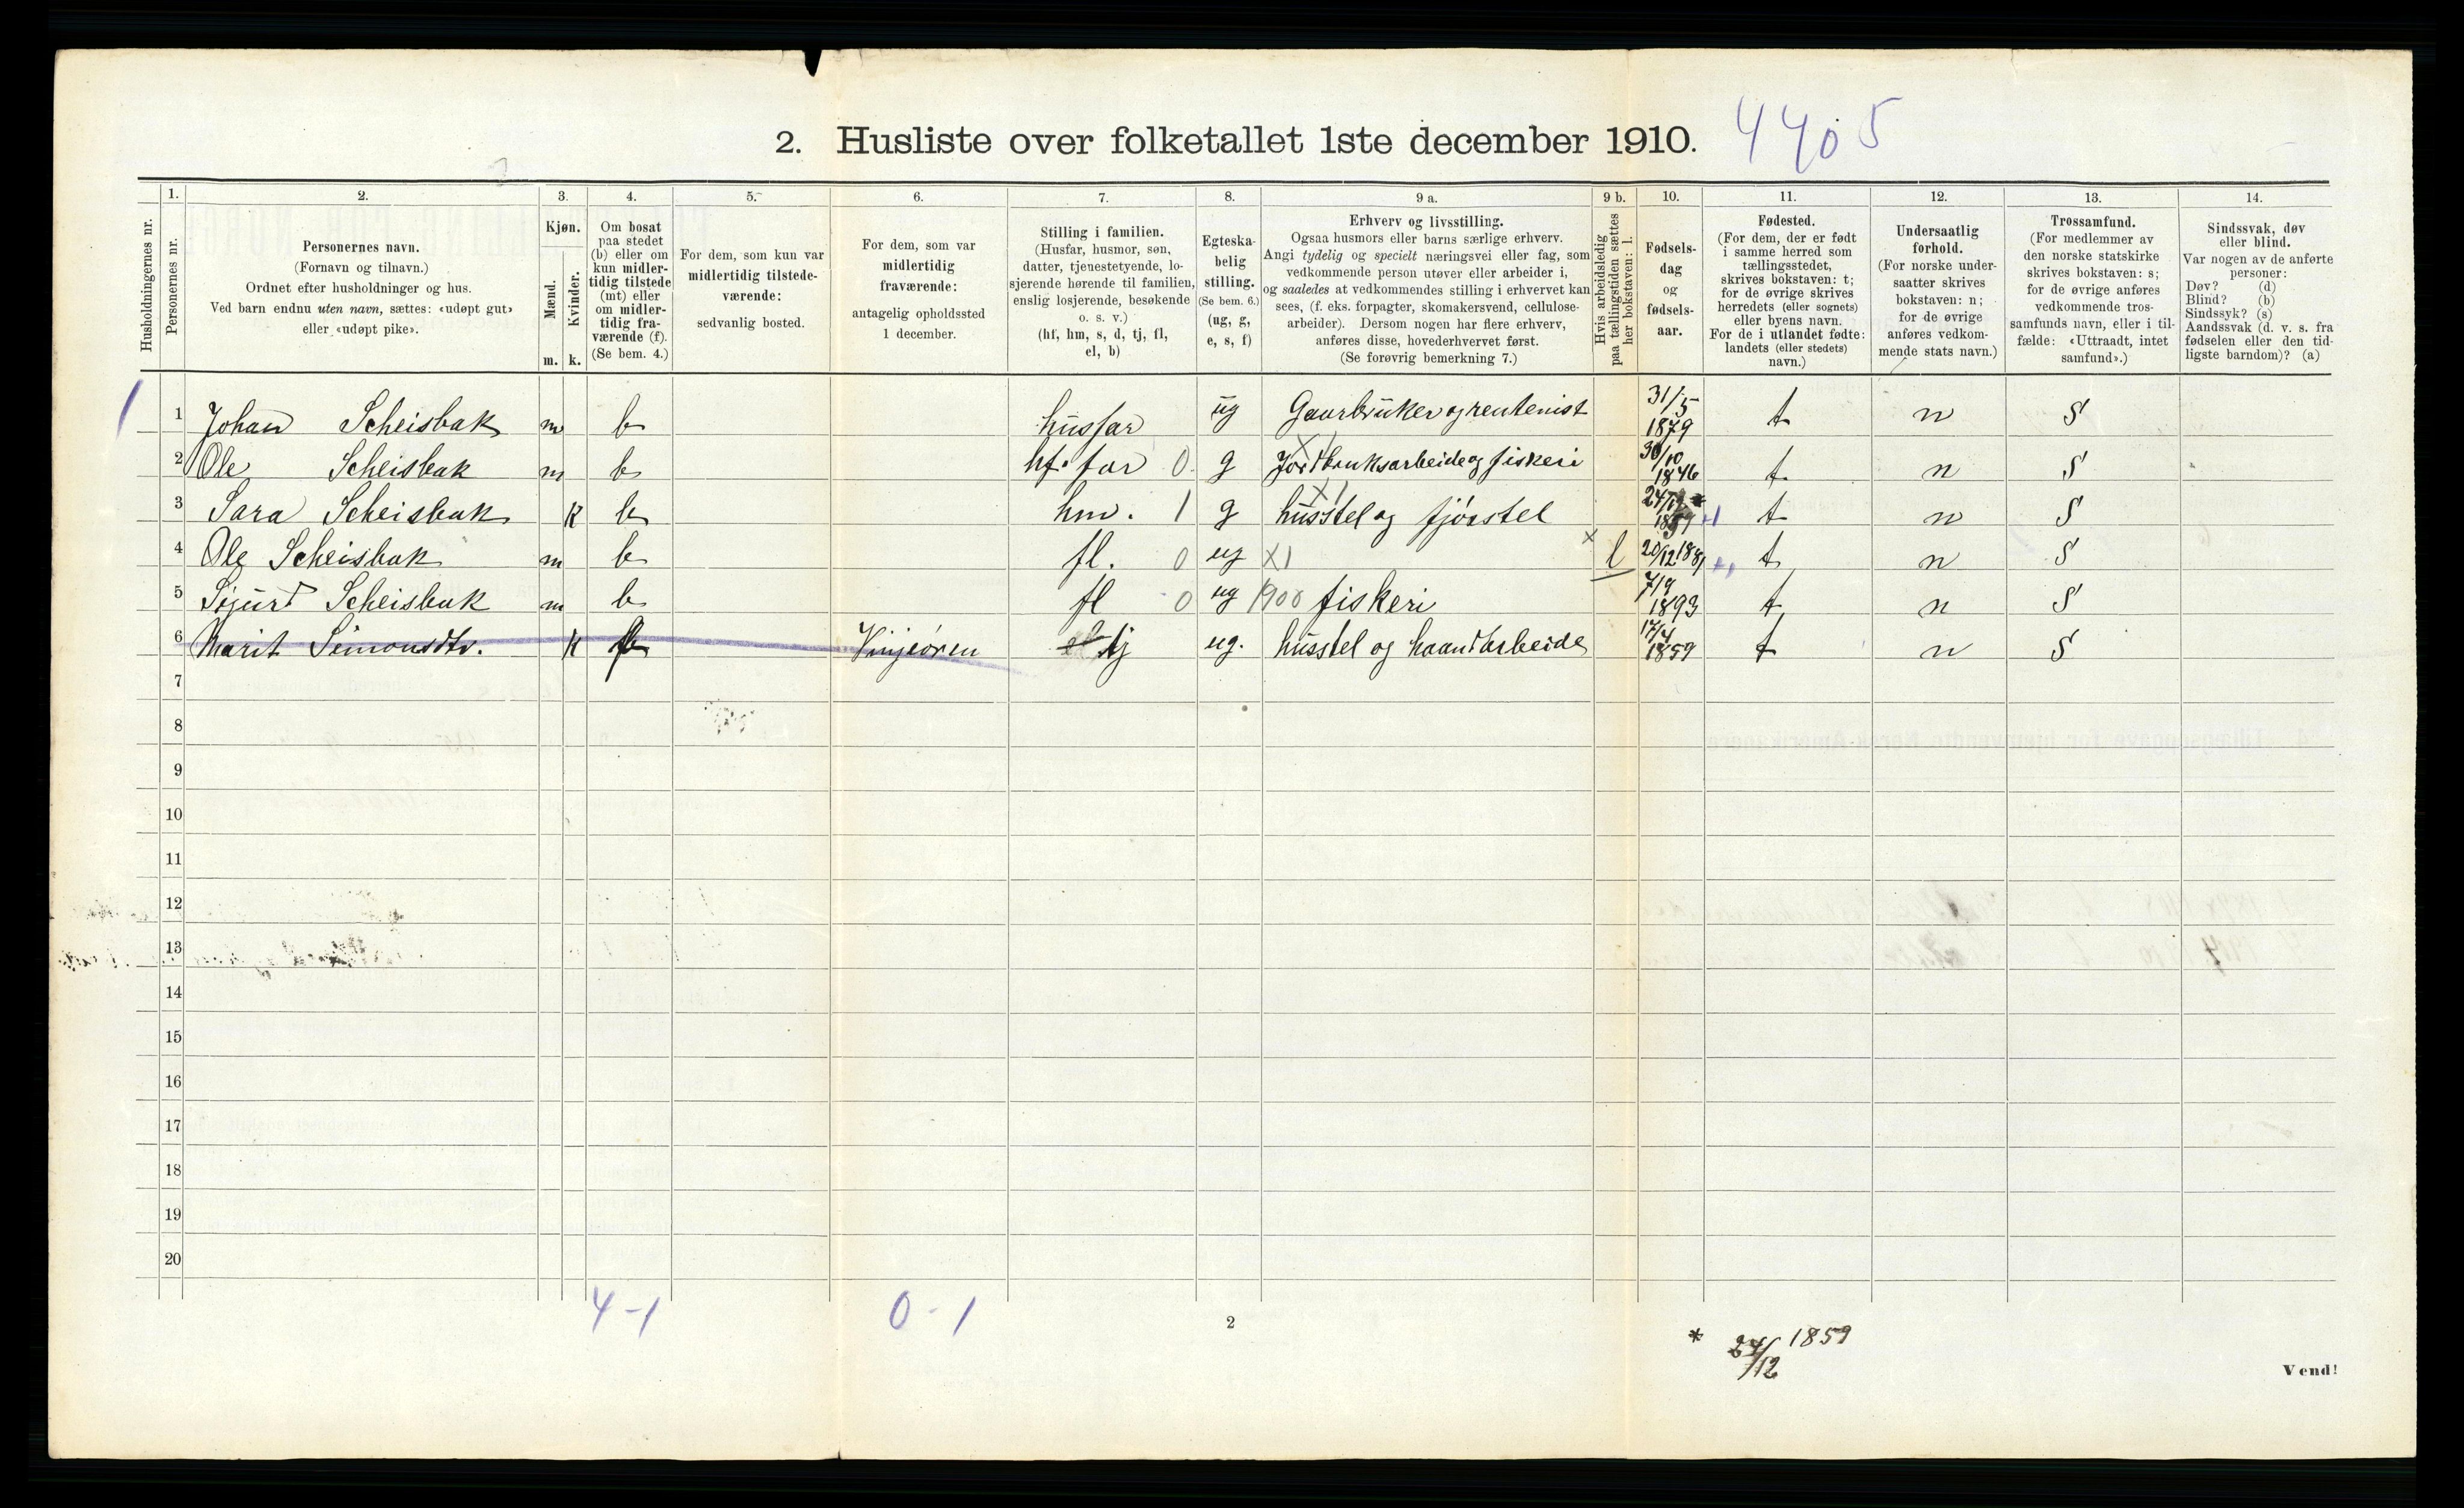 2. Husliste over folketallet 1ste december 1910. 4405
Husholdningernes nr.
1.
Personernes nr.
2.
Personernes navn.
(Fornavn og tilnavn.)
Ordnet efter husholdninger og hus.
Ved barn endnu uten navn, sættes: «udøpt gut»
eller «udøpt pike».
3.
Kjøn.
Mænd.
Kvinder.
m. k.
4.
Om bosat
paa stedet
(b) eller om
kun midler-
tidig tilstede
(mt) eller
om midler-
tidig fra-
værende (f).
(Se bem. 4.)
5.
For dem, som kun var
midlertidig tilstede-
værende:
sedvanlig bosted.
6.
For dem, som var
midlertidig
fraværende:
antagelig opholdssted
1 december.
7.
Stilling i familien.
(Husfar, husmor, søn,
datter, tjenestetyende, lo-
sjerende hørende til familien,
enslig losjerende, besøkende
o. s. v.)
(hf, hm, s, d, tj, fl,
el, b)
8.
Egteska-
belig
stilling.
(Se bem. 6.)
(ug, g,
e, s, f)
9 a.
Erhverv og livsstilling.
Ogsaa husmors eller barns særlige erhverv.
Angi tydelig og specielt næringsvei eller fag, som
vedkommende person utøver eller arbeider i,
og saaledes at vedkommendes stilling i erhvervet kan
sees, (f. eks. forpagter, skomakersvend, cellulose-
arbeider). Dersom nogen har flere erhverv,
anføres disse, hovederhvervet først.
(Se forøvrig bemerkning 7.)
9 b.
Hvis arbeidsledig
paa tællingstiden sættes
her bokstaven: l.
10.
Fødsels-
dag
og
fødsels-
aar.
11.
Fødested.
(For dem, der er født
i samme herred som
tællingsstedet,
skrives bokstaven: t;
for de øvrige skrives
herredets (eller sognets)
eller byens navn.
For de i utlandet fødte:
landets (eller stedets)
navn.)
12.
Undersaatlig
forhold.
(For norske under-
saatter skrives
bokstaven: n;
for de øvrige
anføres vedkom-
mende stats navn.)
13.
Trossamfund.
(For medlemmer av
den norske statskirke
skrives bokstaven: s;
for de øvrige anføres
vedkommende tros-
samfunds navn, eller i til-
fælde: «Uttraadt, intet
samfund».)
14.
Sindssvak, døv
eller blind.
Var nogen av de anførte
personer:
Døv? (d)
Blind? (b)
Sindssyk? (s)
Aandssvak (d. v. s. fra
fødselen eller den tid-
ligste barndom)? (a)
1 1 Johan Scheisbak m b husfar ug Gaurbruker og rentenist 31/5 1879 t n S
2 Ole Scheisbak m b hf. far 0 g X1 Jordbruksarbeide og fiskeri 30/10 1846 t n S
3 Sara Scheisbak k b hm. 1 g X1 husstel og fjøsstel 24/12 * 1859 +1 t n S
4 Ole Scheisbak m b fl. 0 ug X1 x l 20/12 1881 +1 t n S
5 Sigurd Scheisbak m b fl 0 ug 1900 fiskeri 7/9 1893 t n S
6 Marit Simonsdtr. k f Vinjeøren tj ug. husstel og haandarbeide 17/4 1859 t n S
7
8
9
10
11
12
13
14
15
16
17
18
19
20
4-1 0-1
2
* 24/12 1859
Vend!